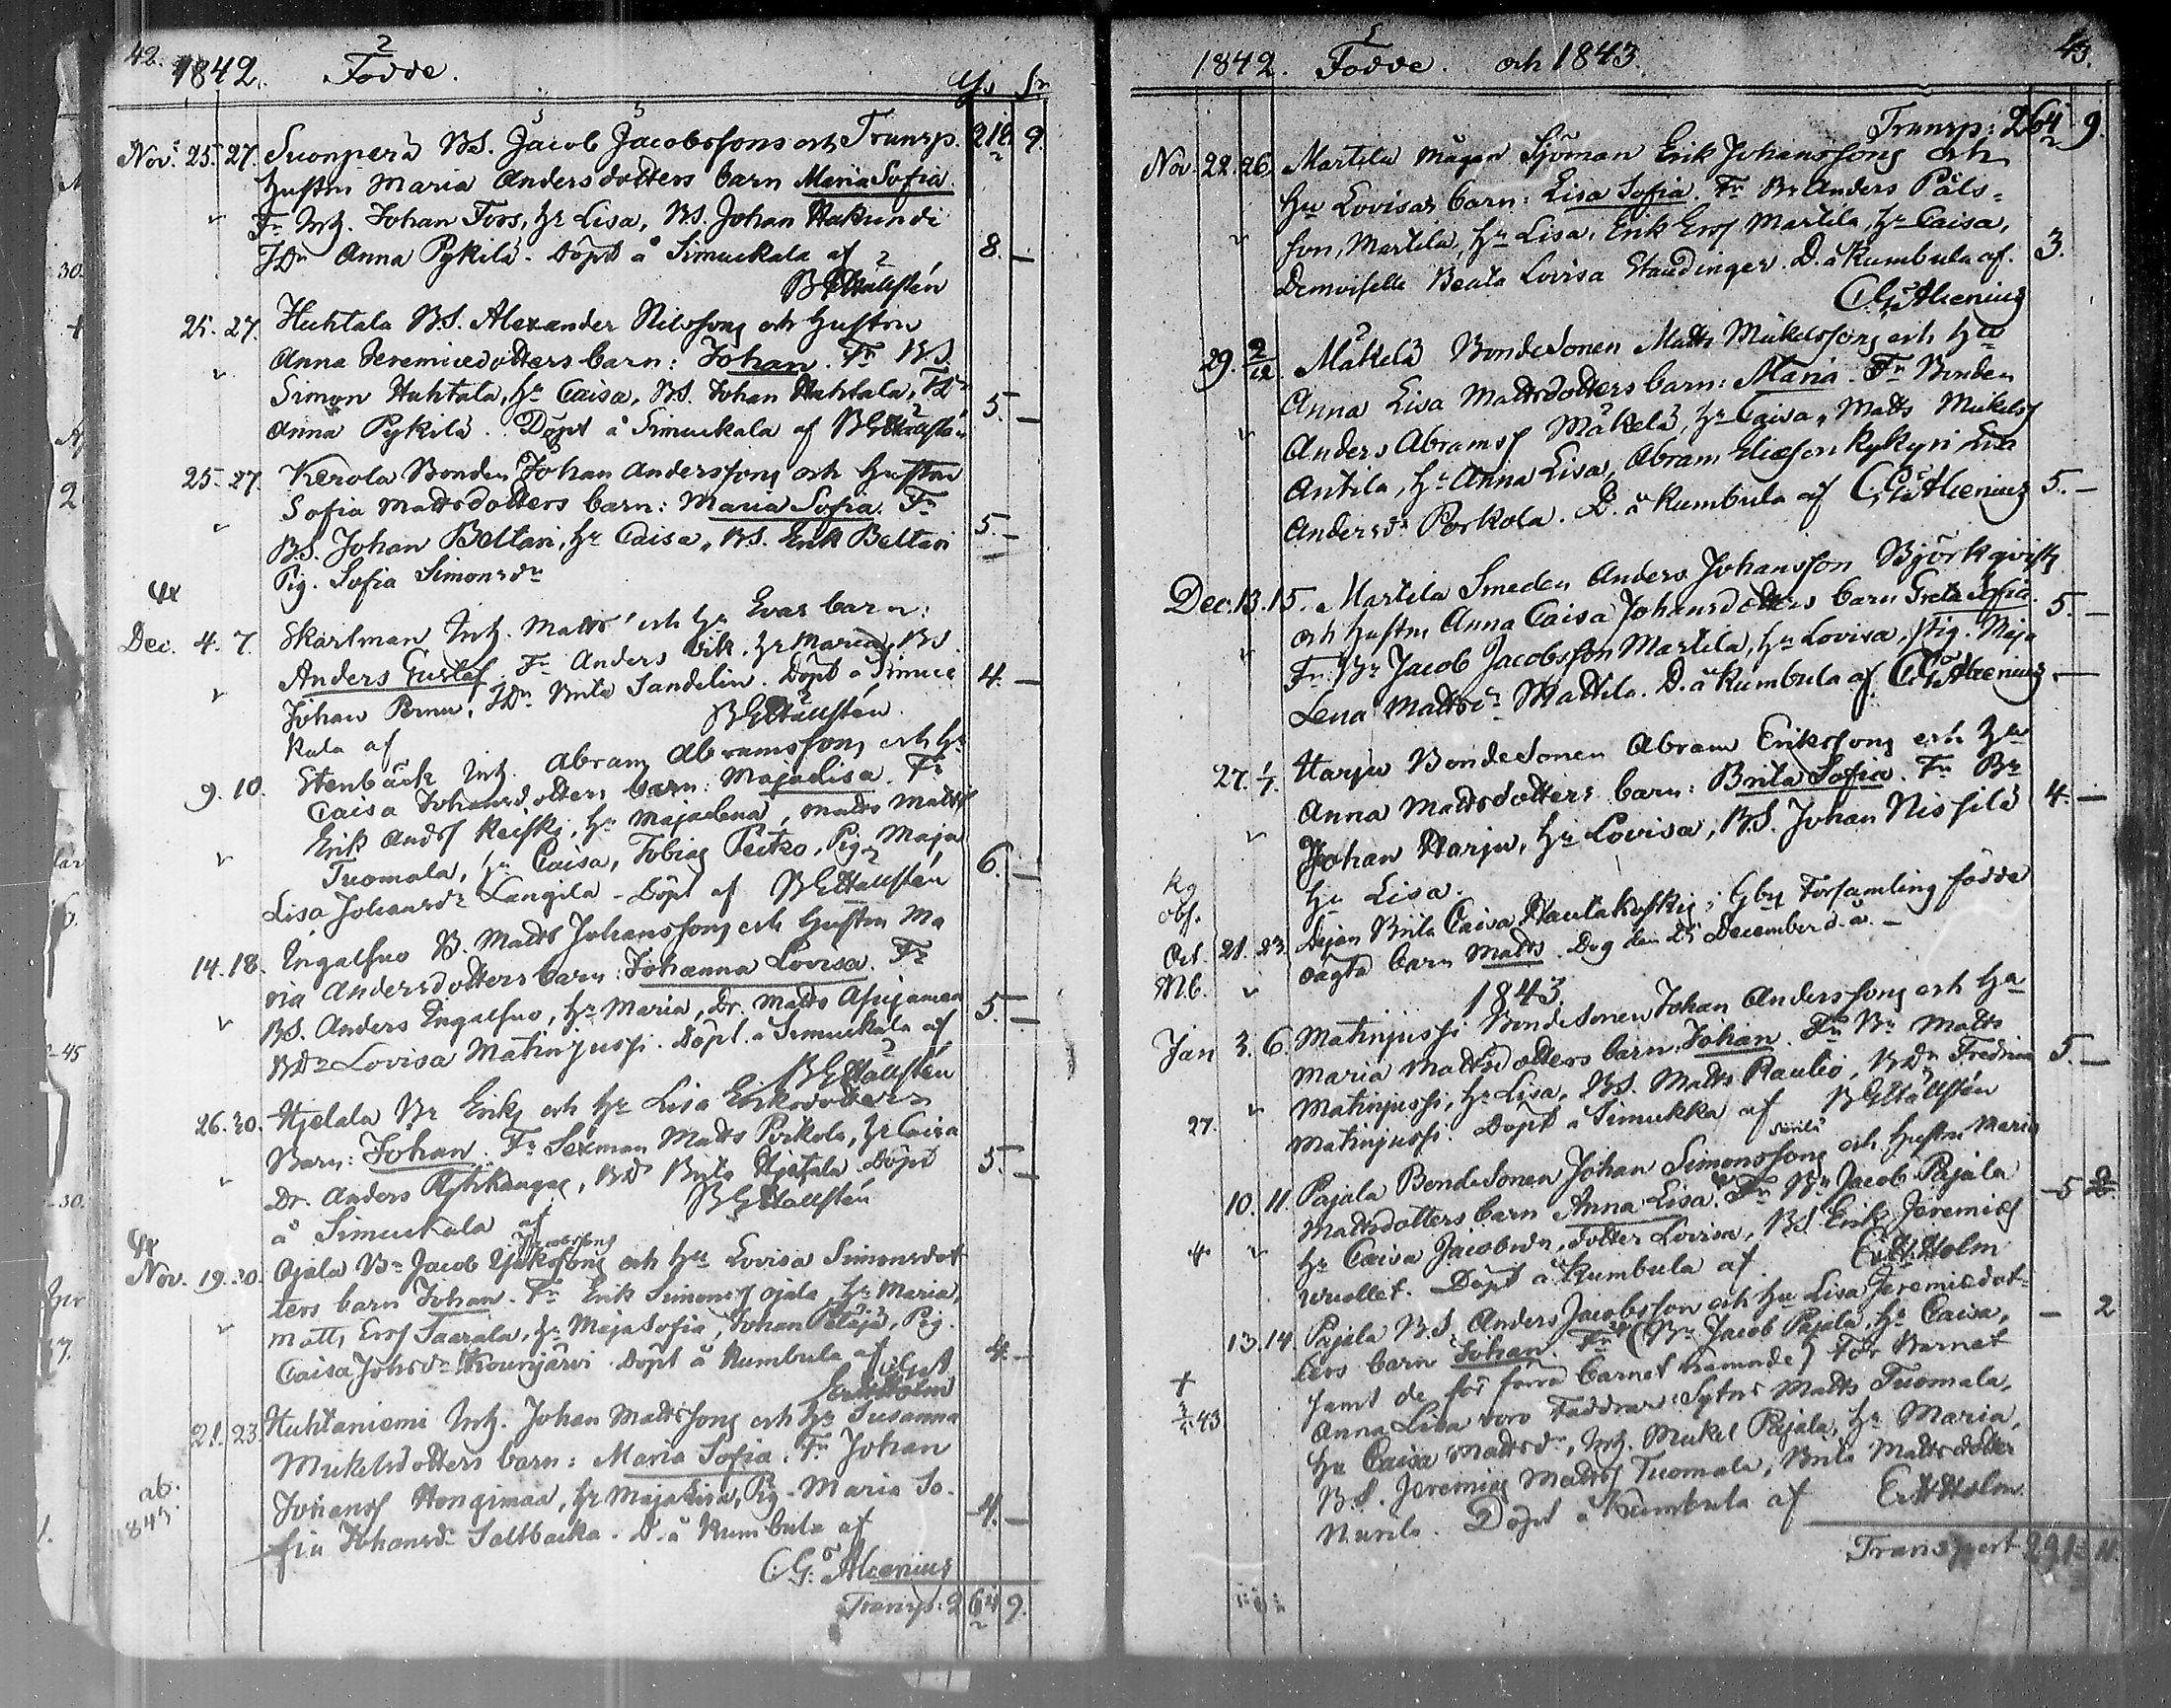 42. 1842. Födde.
Nov: 25. 27. Suonperä BS. Jacob Jacobssons och Transp. 212 9.
Hustru Maria Andersdotters barn Maria Sofia.
Fr Inh. Johan Fors, Hr Lisa, BS. Johan Hakundi
JDr Anna Pykilä. Döpt å Simuckala af 8. —
BE Hällstén
25. 27. Huhtala BS. Alexander Nilssons och Hustru
Anna Jeremiædotters barn: Johan. Fr BS
Simon Huhtala, Hr Caisa, BS. Johan Huhtala, JDr
Anna Pykilä. Döpt å Simuckala af BE Hällstén 5. —
25. 27. Kerola Bonden Johan Anderssons och Hustru
Sofia Mattsdotters barn: Maria Sofia. Fr
BS. Johan Beltari, Hr Caisa, BS. Erik Beltari 5. —
Pig. Sofia Simonsdr
Dec. 4. 7. Skärlman Inh. Matts och Hr Evas barn:
Anders Gustaf. Fr Anders Vik, Hr Maria, BS
Johan Pernu, JDr Brita Sandelin. Döpt å Simuc 4. —
kala af BE Hällstén.
9. 10. Stenbäck Inh. Abram Abramssons och Hr
Caisa Johansdotters barn: Majalisa. Fr
Erik Andss Reiski, Hr Majalena, Matts Matss
Tuomala, Hr Caisa, Tobias Peitko, Pig. Maja
Lisa Johansdr Langila - Döpt af BE Hällstén 6. —
14. 18. Ingalsuo B. Matts Johanssons och Hustru Ma
ria Andersdotters barn: Johanna Lovisa. Fr
BS. Anders Ingalsuo, Hr Maria, Dr. Matts Asujamaa 5. —
BDr Lovisa Matinjussi. Döpt å Simuckala af
BE Hällstén
26. 30. Hjelala Br Eriks och Hr Lisa Eriksdotters
Barn: Johan. Fr Sexman Matts Porkola, Hr Caisa
Dr. Anders Rytikangas, BD Brita Hjetala. Döpt 5. —
å Simuckala af BE Hällstén
Nov. 19. 20. Ojala Br Jacob Jacobssons och Hu Lovisa Simonsdot
ters barn Johan. Fr Erik Simonss Ojala, Hr Maria,
Matts Erss Saarala, Hr Maja Sofia, Johan Peläjä, Pig.
Caisa Johsdr Kourijärvi. Döpt å Kumbula af 4. —
Er H Holm
21. 23. Huhtaniemi Inh. Johan Mattssons och Hr Susanna
Mickelsdotters barn: Maria Sofia. Fr Johan
Johanss Hongimaa, Hr Maja Lisa, Pig. Maria So-
fia Johansdr Saltbacka. D. å Kumbula af 4. —
ab. 1845
C. G. Alcenius
Transp: 264 9.
1842. Födde. och 1843. 43.
Transp: 264 9.
Nov. 22. 26. Martila mågen Sjöman Erik Johanssons och
Hu Lovisas barn: Lisa Sofia. Fr Br Anders Påls-
son, Martila, Hr Lisa, Erik Erss Martila, Hr Caisa,
Demoiselle Beata Lovisa Staudinger. D. å Kumbula af. 3.
C. G. Alcenius
29. 2/12. Mäkelä Bondesonen Matts Mickelssons och Hu
Anna Lisa Mattsdotters barn: Maria. Fr Bonden
Anders Abramss Mäkelä, Hr Caisa, Matts Mickelss
Antila, Hr Anna Lisa, Abram Eliasson Kykyri Lisa
Andersdr Porkola. D. å Kumbula af C. G. Alcenius 5. —
Dec. 13. 15. Martila Smeden Anders Johansson Björkqvists
och Hustru Anna Caisa Johansdotters barn Greta Sofia. 5. —
Fr Br Jacob Jacobsson Martila, Hr Lovisa, Pig. Maja
Lena Mattsdr Mattila. D. å Kumbula af. C. G. Alcenius —
27. 1/1. Harju Bondesonen Abram Erikssons och Hu
Anna Mattsdotters barn: Brita Sofia. Fr Br
Johan Harju, Hr Lovisa, BS. Johan Nissilä 4. —
Hr Lisa.
obs.
Oct. 21. 23. Dejan Brita Caisa i Gby Församling födde
oägta barn Matts. Dog den 25 December d. å. —
1843.
Jan 3. 6. Matinjussi Bondesonen Johan Anderssons och Hu
Maria Mattsdotters barn: Johan. Fr Br Matts
Matinjussi, Hr Lisa, BS. Matts Raulio, BDr Fredrica 5. —
27. Matinjussi. Döpt å Simukka af BE Hällstén
10. 11. Pajala Bondesonen Johan Simonssons och Hustru Maria
Mattsdotters barn Anna Lisa. Fr Br Jacob Pajala
Hr Caisa Jacobsdr, dotter Lovisa, BS. Erik Jeremiæs -5 2.
Wuollet. Döpt å Kumbula af Er H Holm
13. 14. Pajala BS Anders Jacobsson och Hu Lisa Jeremiædot-
ters barn Johan. Fr (Br Jacob Pajala, Hr Caisa, — 2
samt de för förra barnet nämnde) För Barnet
43 Anna Lisa voro Faddrar: Sytnr Matts Tuomala,
Hu Caisa Mattsdr, Inh. Mickel Pajala, Hr Maria,
BS. Jeremias Mattss Tuomala, Brita Mattsdotter
Nurila. Döpt å Kumbula af Er H Holm.
Transport 291 11.